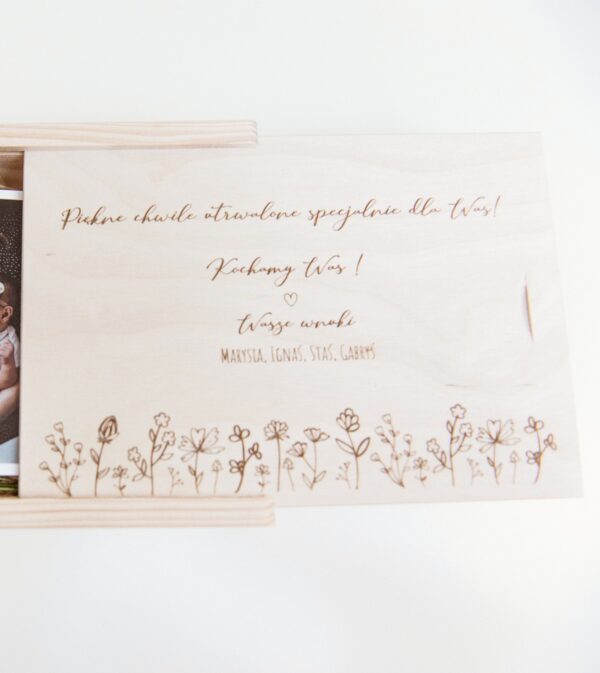 Piękne chwile utrwalone specjalnie dla Was!
Kochamy Was !
Wasze wnuki
Marysia, Ignaś, Staś, Gabryś